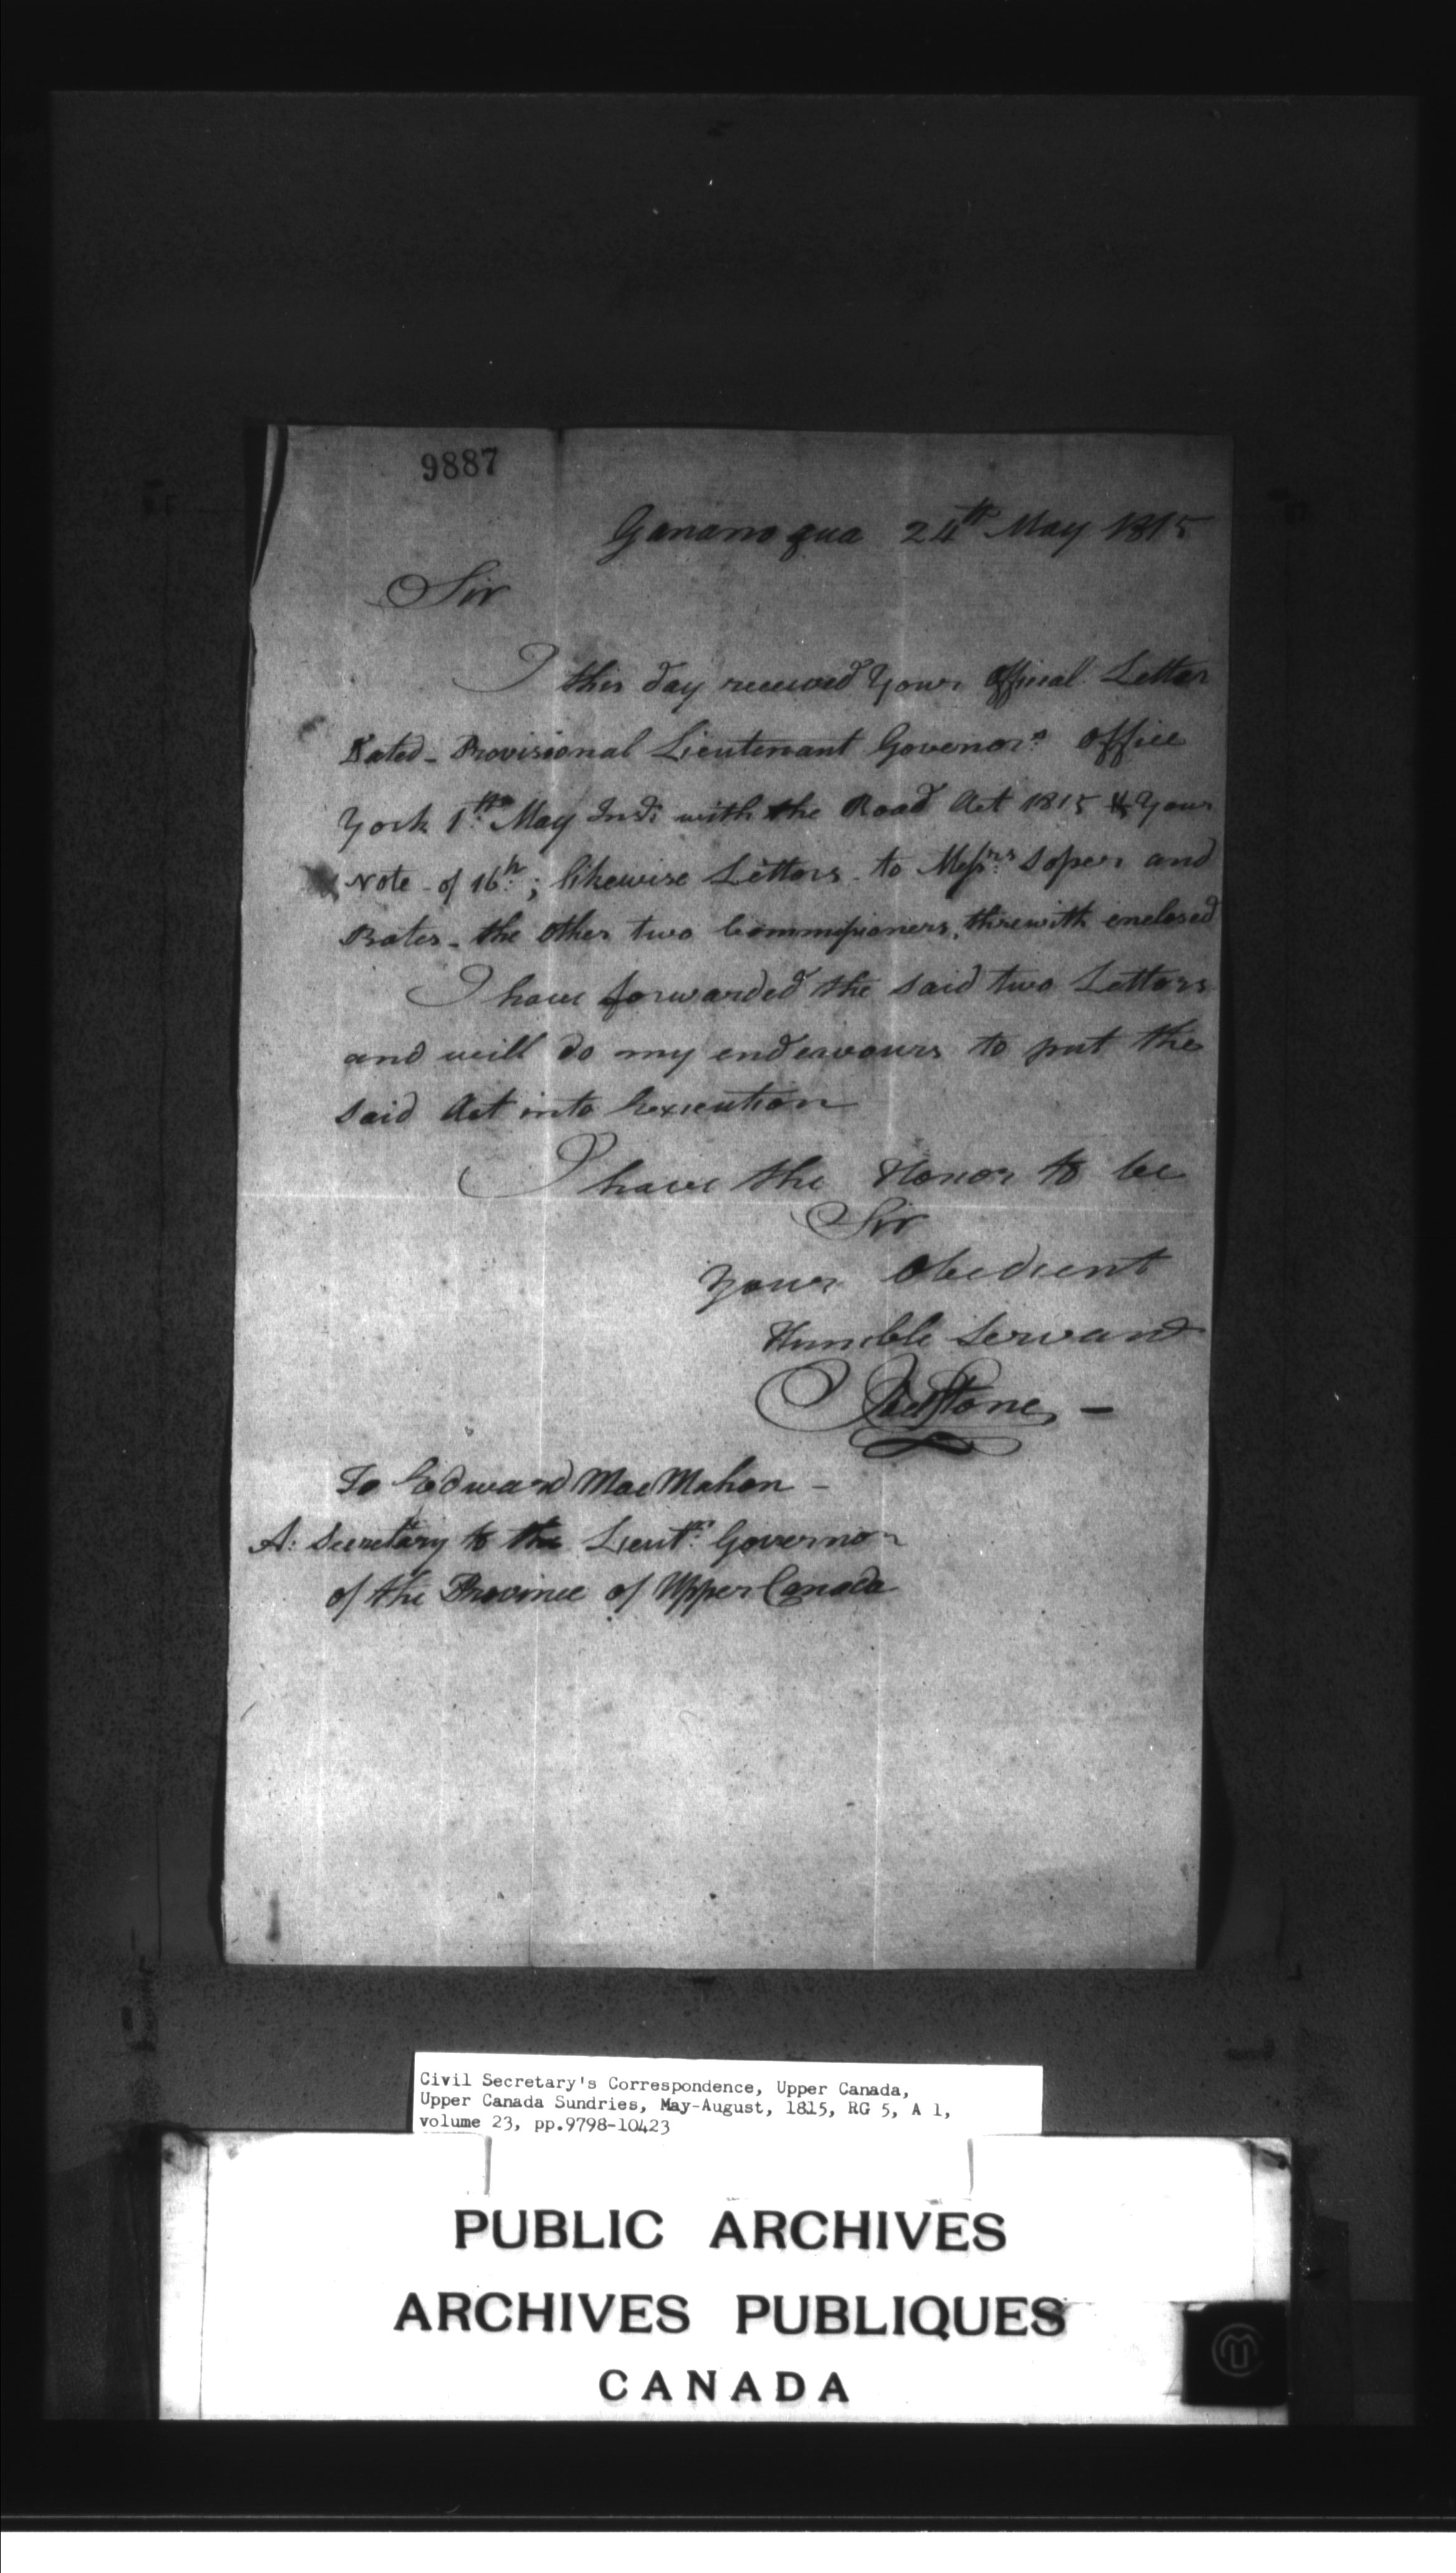 9887
Gananoqua 24th May 1815
Sir
I this day received Your Official Letter
Dated - Provisional Lieutenant Govenor's Office
York 1st May Inst: with the Road Act 1815 & Your
Note - of 16th; likewise Letters to Messrs: Soper and
Bates - the other two Commissioners, threwith enclosed
I have forwarded the said two Letters
and will do my endeavours to put the
said Act into Execution
I have the Honor to be
Sir
Your Obedient
Humble Servant
Joel Stone -
To Edward MacMahon -
A: Secretary to the Lieut: Governor
of the Province of Upper Canada
Civil Secretary's Correspondence, Upper Canada,
Upper Canada Sundries, May-August, 1815, RG 5, A 1,
volume 23, pp.9798-10423
PUBLIC ARCHIVES
ARCHIVES PUBLIQUES
CANADA